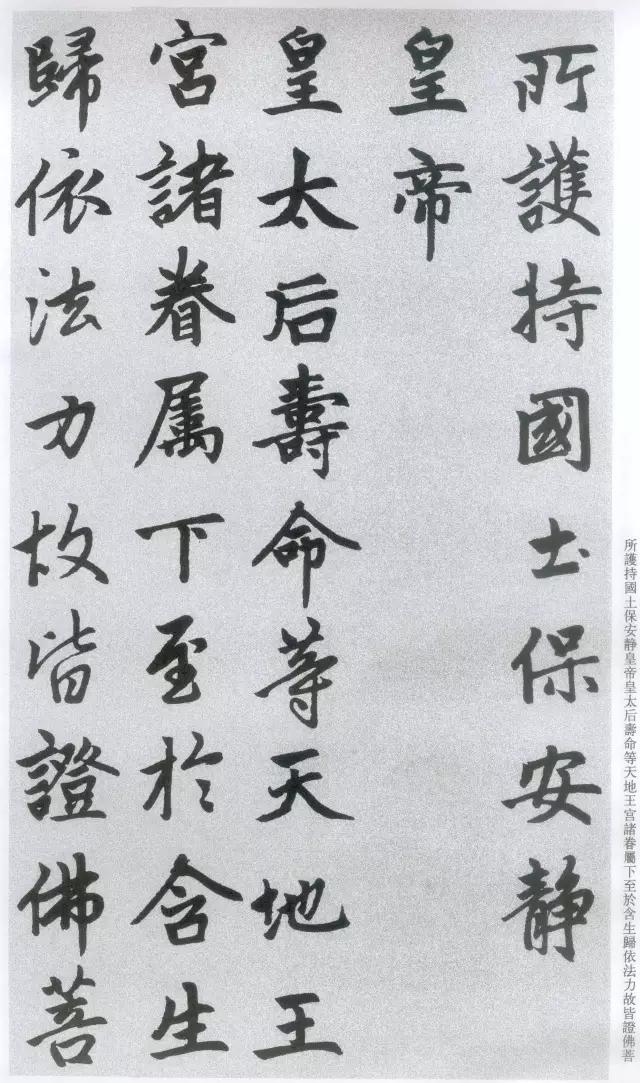 所護持國土保安靜
皇帝
皇太后壽命等天地王
宮諸眷属下至於含生
歸依法力故皆證佛菩
所護持國土保安静皇帝皇太后壽命等天地王宫諸眷屬下至於含生歸依法力故皆證佛菩